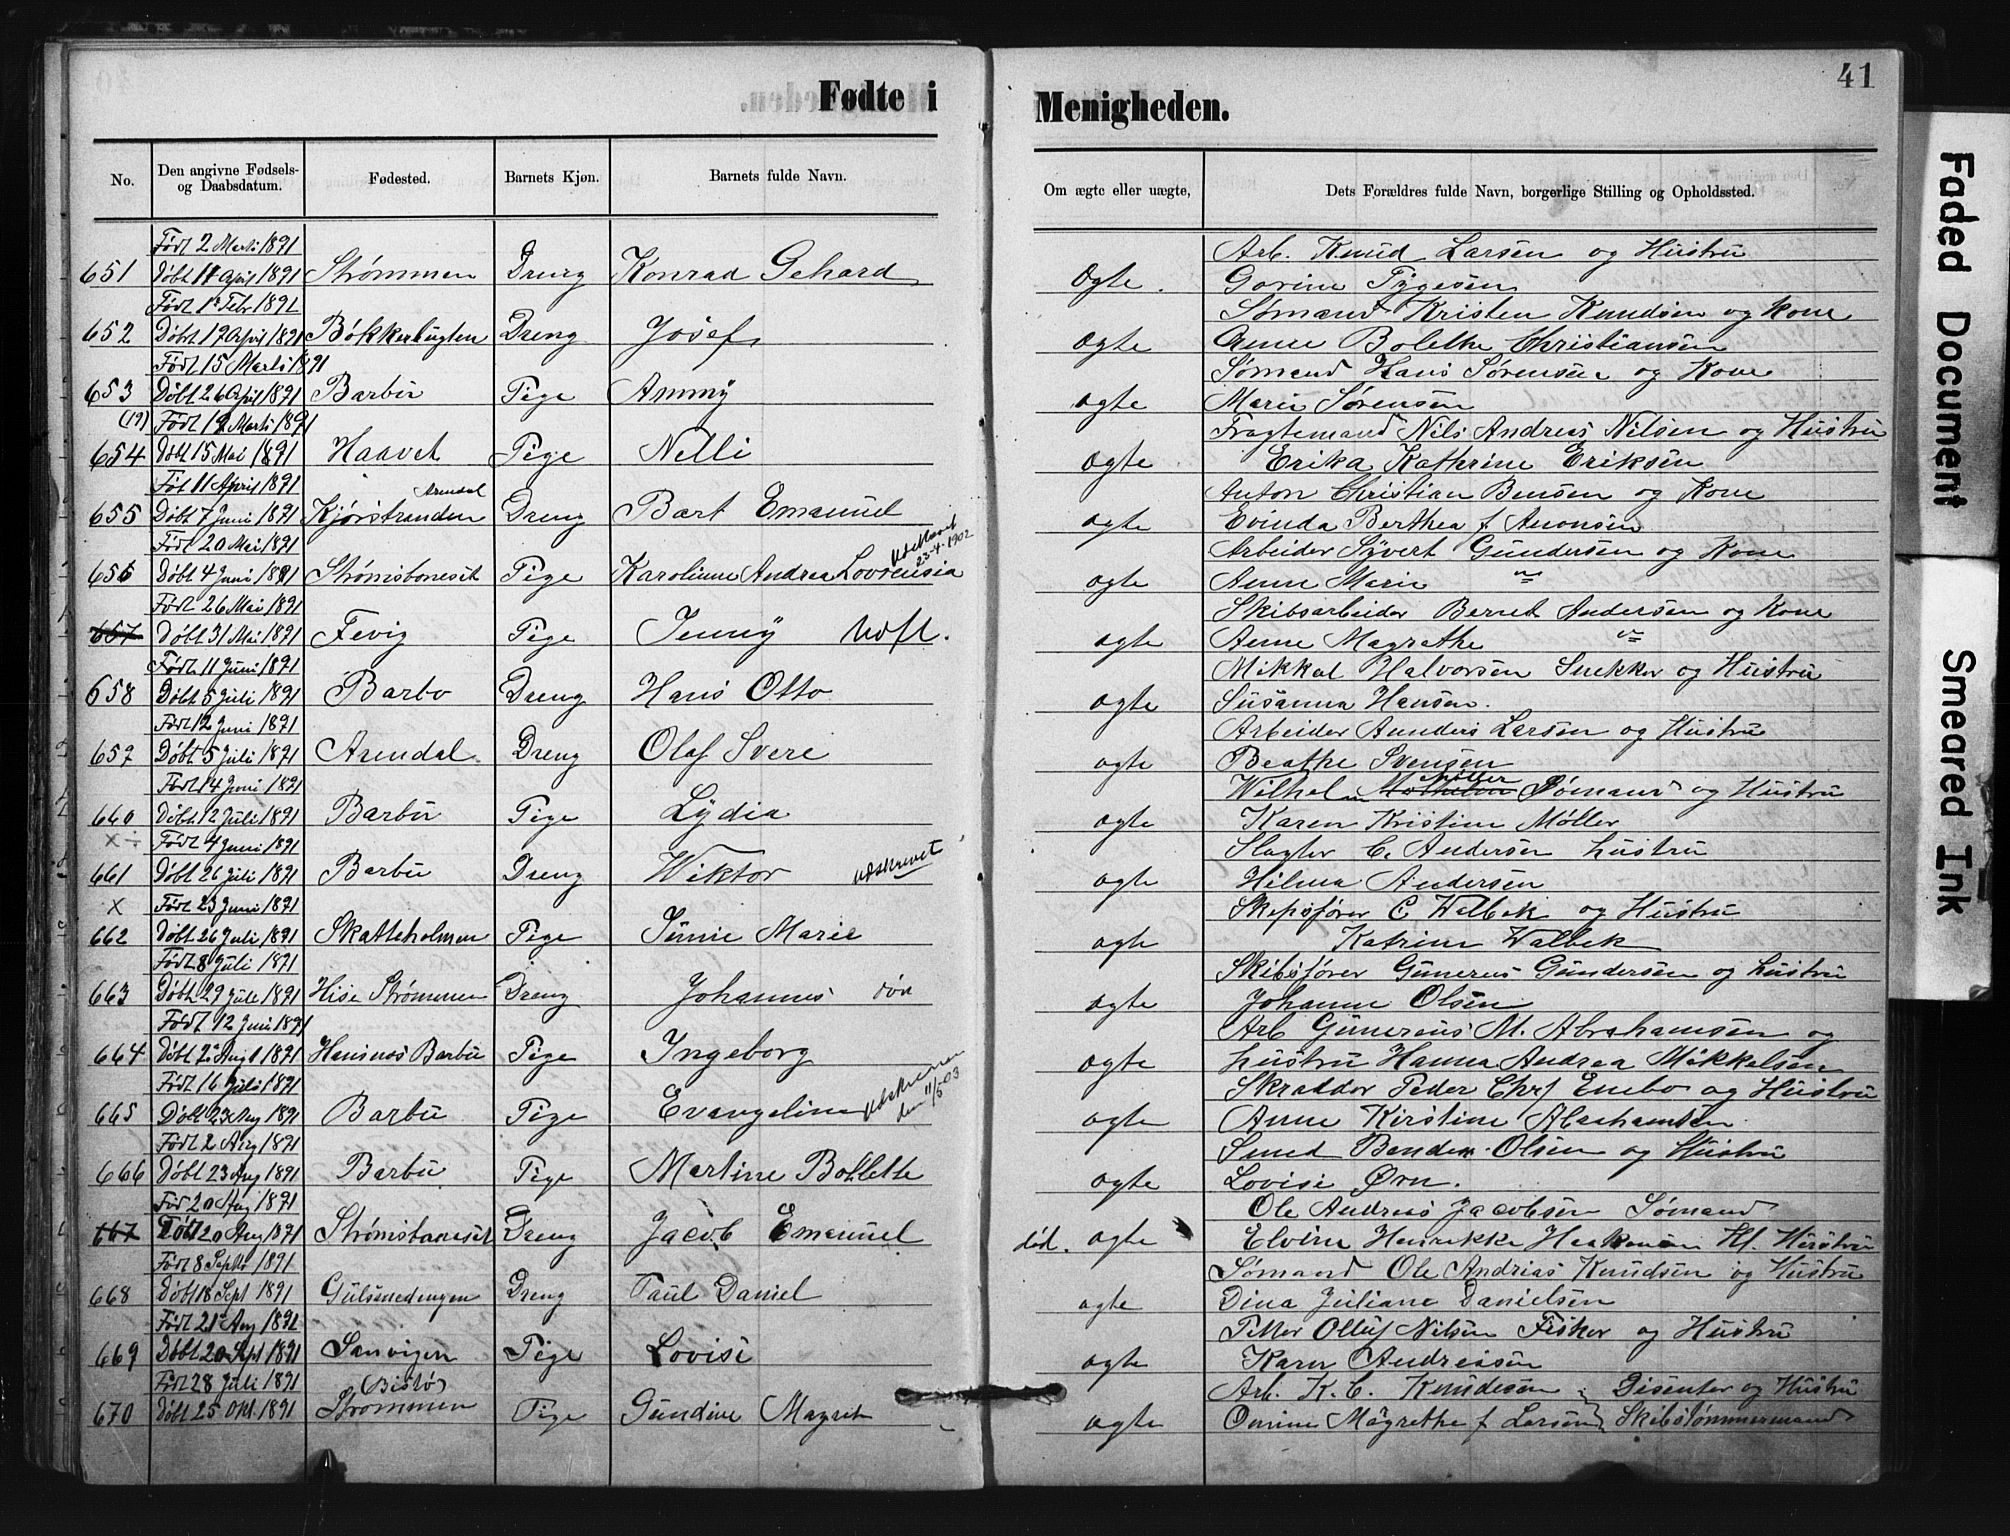 Fødte i Menigheden.
41
No. | Den angivne Fødsels- og Daabsdatum. | Fødested. | Barnets Kjøn. | Barnets fulde Navn. | Om ægte eller uægte, | Dets Forældres fulde Navn, borgerlige Stilling og Opholdssted.
Født 2 Marts 1891 | Arb. Knud Larsen og Hustru
651 Døbt 11 April 1891 Strømmen Dreng Konrad Gehard | ægte. Gorine Tygesen
Født 1 Febr 1891 | Sømand Kristen Knudsen og Kone
652 Døbt 19 April 1891 Bøkkerbugten Dreng Josef | ægte Anne Bolethe Christiansen
Født 15 Marts 1891 | Sømand Hans Sørensen og Kone
653 Døbt 26 April 1891 Barbu Pige Ammy | ægte Marie Sørensen
(19) Født 19 Marts 1891 | Fragtemand Nils Andreas Nilsen og Hustru
654 Døbt 15 Mai 1891 Haavet Pige Nelli | ægte Erika Kathrine Eriksen
Føt 11 April 1891 Arendal | Anton Christian Bensen og Kone
655 Døbt 7 Juni 1891 Kjørstranden Dreng Bart Emanuel | ægte Evinda Berthea f. Anonsen
Født 20 Mai 1891 Udmeldt 23-4-1902 | Arbeider Syvert Gundersen og Kone
656 Døbt 4 Juni 1891 Strømsboneset Pige Karolinne Andrea Lovrensia | ægte Anne Marie "
Født 26 Mai 1891 | Skibsarbeider Bernt Andersen og Kone
657 Døbt 31 Mai 1891 Fevig Pige Jenny Udfl. | ægte Anne Magrethe "
Født 11 Juni 1891 | Mikkal Halvorsen Snekker og Hustru
658 Døbt 5 Juli 1891 Barbo Dreng Hans Otto | ægte Susanna Hansen.
Født 12 Juni 1891 | Arbeider Aunders Larsen og Hustru
659 Døbt 5 Juli 1891 Arendal Dreng Olaf Svere | ægte Beathe Svensen
Født 14 Juni 1891 | Wilhelm Møller Sømand og Hustru
660 Døbt 12 Juli 1891 Barbu Pige Lydia | ægte Karen Kristine Møller
x÷ Født 4 Juni 1891 | Slagter C. Andersen hustru
661 Døbt 26 Juli 1891 Barbu Dreng Wiktor udskrevet | ægte Hilma Andersen
x Født 23 Juni 1891 | Skipsfører C Walbek og Hustru
662 Døbt 26 Juli 1891 Skatteholmen Pige Junie Marie | ægte Katrine Walbek
Født 8 Juli 1891 | Skibsfører Gunerus Gundersen og hustru
663 Døbt 29 Juli 1891 Hisø Strømmen Dreng Johannes død | ægte Johanne Olsen
Født 12 Juni 1891 | Arb Gunerus M. Abrahamsen og
664 Døbt 2 Aug 1891 Hansnes Barbu Pige Ingeborg | ægte hustru Hanna Andrea Mikkelsen
Født 16 Juli 1891 | Skrædder Peder Chr. Enebo og Hustru
665 Døbt 23 Aug 1891 Barbu Pige Evangeline udskreven den 11/5 03 | ægte Anne Kirstine Abrahamsen
Født 2 Aug 1891 | Smed Bendix Olsen og Hustru
666 Døbt 23 Aug 1891 Barbu Pige Martine Bollette | ægte Lovise Ørn.
Fød 20 Aug 1891 | Ole Andreas Jacobsen Sømand
667 Døbt 20 Aug 1891 Strømsboneset Dreng Jacob Emanuel | død. ægte Elvine Henrikke Haakensen Hl. Hustru
Født 8 Septb 1891 | Sømand Ole Andrias Knudsen og Hustru
668 Døbt 18 Sept 1891 Gulsmedengen Dreng Paul Daniel | ægte Dina Juliane Danielsen
Født 21 Aug 1891 | Petter Olluf Nilsen Fisker og Hustru
669 Døbt 20 Sept 1891 Sanvigen Pige Lovise | ægte Karn Andreasen
Født 28 Juli 1891 (Bistø) | Arb. K. C. Knudesen Disenter og Hustru
670 Døbt 25 Okt. 1891 Strømmen Pige Gundine Magret | ægte Omine Magrethe f Larsen Skibstømmermand
Faded Document
Smeared Ink